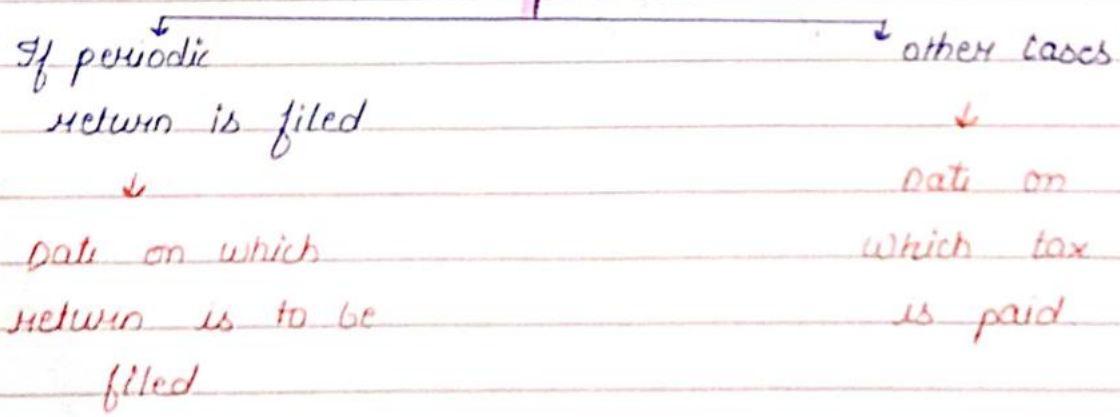 If periodic
return is filed
Date on which
return is to be
filed
other cases
Date on
which tax
is paid